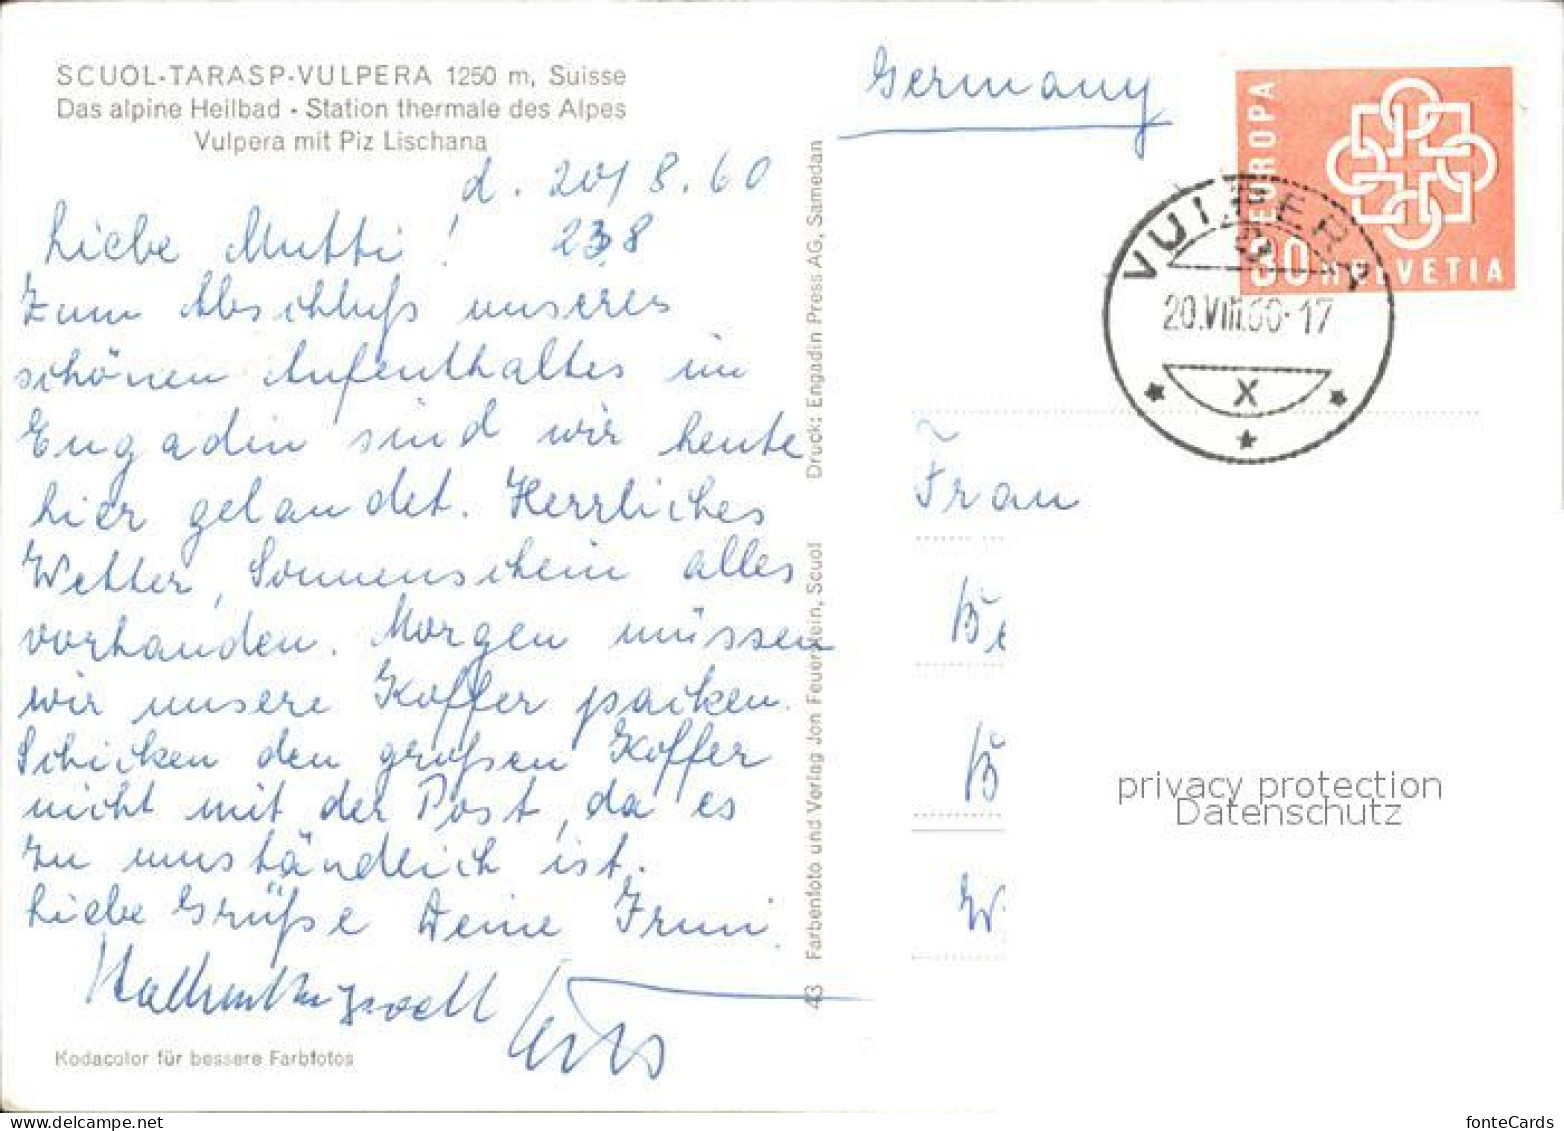 SCUOL-TARASP-VULPERA 1250 m, Suisse
Das alpine Heilbad - Station thermale des Alpes
Vulpera mit Piz Lischana
d. 20/8.60
Liebe Mutti! 23.8
Zum Abschluß unseres
schönen Aufenthaltes im
Engadin sind wir heute
hier gelandet. Herrliches
Wetter, Sonnenschein alles
vorhanden. Morgen müssen
wir unsere Koffer packen.
Schicken den großen Koffer
nicht mit der Post, da es
zu umständlich ist.
Liebe Grüße Deine
Kodacolor für bessere Farbfotos
43 Farbenfoto und Verlag Jon Feuerstein, Scuol Druck: Engadin Press AG, Samedan
Germany
EUROPA
30 HELVETIA
VULPERA
20.VIII.60-17
X
Frau
Be
B
W.
privacy protection
Datenschutz
fonteCards